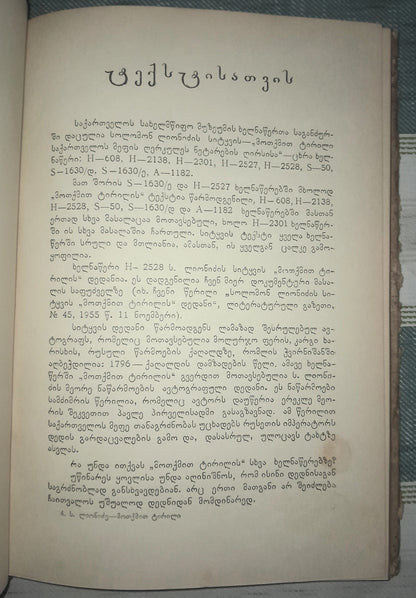 ტექსტისათვის
საქართველოს სახელმწიფო მუზეუმის ხელნაწერთა საგანძურ-
ში დაცულია სოლომონ ლიონიძის სიტყვის—„მოთქმით ტირილი
საქართველოს მეფის ღერკულეს ნეტარების ღირსისა“—ცხრა ხელ-
ნაწერი: H—608, H—2138, H—2301, H—2527, H—2528, S—50,
S—1630/დ, S—1630/ე, A—1182.
მათ შორის S—1630/ე და H—2527 ხელნაწერებში მხოლოდ
„მოთქმით ტირილის“ ტექსტია წარმოდგენილი, H—608, H—2138,
H—2528, S—50, S—1630/დ და A—1182 ხელნაწერებში მასთან
ერთად სხვა მასალაცაა მოთავსებული, ხოლო H—2301 ხელნაწერ-
ში ის სხვა მასალაშია ჩართული. სიტყვის ტექსტი ყველა ხელნა-
წერში სრული და მთლიანია, ამასთან, ის ყველგან ცალკე გამო-
ყოფილია.
ხელნაწერი H—2528 ს. ლიონიძის სიტყვის „მოთქმით ტი-
რილის“ დედანია. ეს დადგენილია ჩვენ მიერ დოკუმენტური მასა-
ლის საფუძველზე (იხ. ჩვენი წერილი „სოლომონ ლიონიძის სი-
ტყვის „მოთქმით ტირილის“ დედანი“, ლიტერატურული გაზეთი,
№ 45, 1955 წ. 11 ნოემბერი).
სიტყვის დედანი წარმოადგენს ლამაზად შესრულებულ ავ-
ტოგრაფს, რომელიც მოთავსებულია მოლურჯო ფერის, კარგი ხა-
რისხის, რუსული წარმოების ქაღალდზე, რომლის ჭვირნიშანში
აღბეჭდილია: 1796 — ქაღალდის დამზადების წელი. ამავე ხელნაწერ-
ში „მოთქმით ტირილის“ გვერდით მოთავსებულია ს. ლიონი-
ძის მეორე ნაწარმოების ავტოგრაფული დედანი. ეს ნაწარმოები
სამძიმრის წერილია, რომელიც ავტორს დაუწერია ერეკლე მეო-
რის შეკვეთით პავლე პირველისადმი გასაგზავნად. ამ წერილით
საქართველოს მეფე თანაგრძნობას უცხადებს რუსეთის იმპერატორს
დედის გარდაცვალების გამო და, დასასრულ, ულოცავს ტახტზე
ასვლას.
რა უნდა ითქვას „მოთქმით ტირილის“ სხვა ხელნაწერებზე?
უწინარეს ყოვლისა უნდა აღინიშნოს, რომ ისინი დედნისაგან
საგრძნობლად განსხვავდებიან. არც ერთი მათგანი არ შეიძლება
ჩაითვალოს უშუალოდ დედნიდან მომდინარედ.
4. ს. ლიონიძე—მოთქმით ტირილი